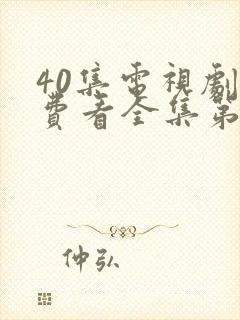 40集電視劇
費看全集第
仲弘